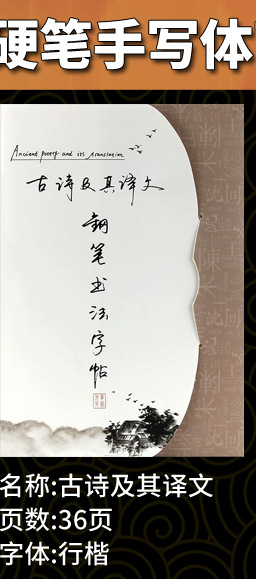 硬笔手写体
Ancient poetry and its translation
古诗及其译文
钢笔书法字帖
名称:古诗及其译文
页数:36页
字体:行楷